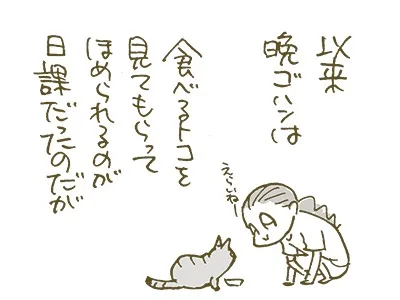 以来
晩ゴハンは
食べるトコを
見てもらって
ほめられるのが
日課だったのだが
えらいねー